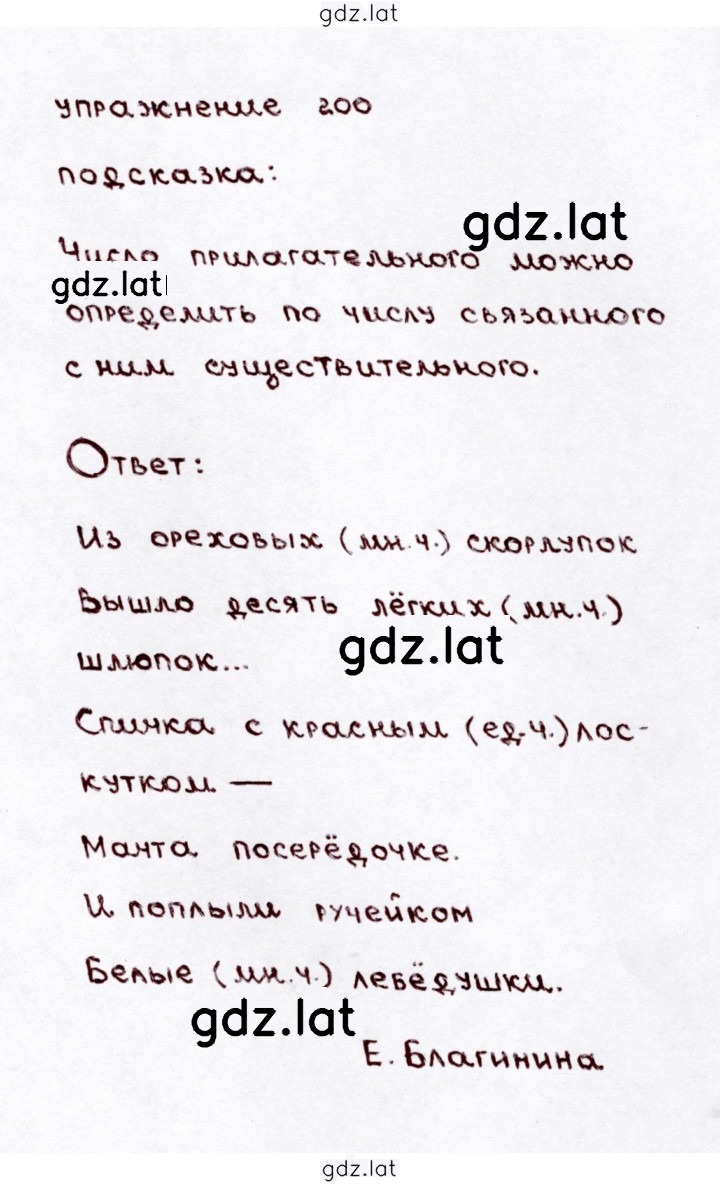 gdz.lat
упражнение 200
подсказка:
gdz.lat
Число прилагательного можно
gdz.lat
определить по числу связанного
с ним существительного.
Ответ:
Из ореховых (мн.ч.) скорлупок
Вышло десять лёгких (мн.ч.)
gdz.lat
шлюпок...
Спичка с красным (ед.ч.) лос-
кутком —
Мачта посерёдочке.
И поплыли ручейком
Белые (мн.ч.) лебёдушки.
gdz.lat
Е. Благинина.
gdz.lat